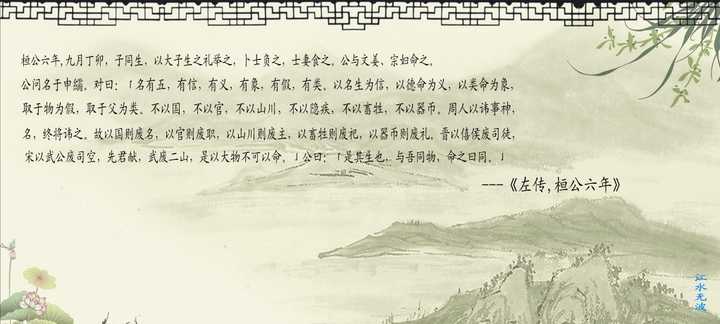 桓公六年,九月丁卯，子同生，以大子生之礼举之，卜士负之，士妻食之。公与文姜、宗妇命之。
公问名于申繻。对曰：「名有五，有信，有义，有象，有假，有类。以名生为信，以德命为义，以类命为象，
取于物为假，取于父为类。不以国，不以官，不以山川，不以隐疾，不以畜牲，不以器币。周人以讳事神，
名，终将讳之。故以国则废名，以官则废职，以山川则废主，以畜牲则废祀，以器币则废礼。晋以僖侯废司徒，
宋以武公废司空，先君献，武废二山，是以大物不可以命。」公曰：「是其生也，与吾同物，命之曰同。」
---《左传,桓公六年》
江水无波